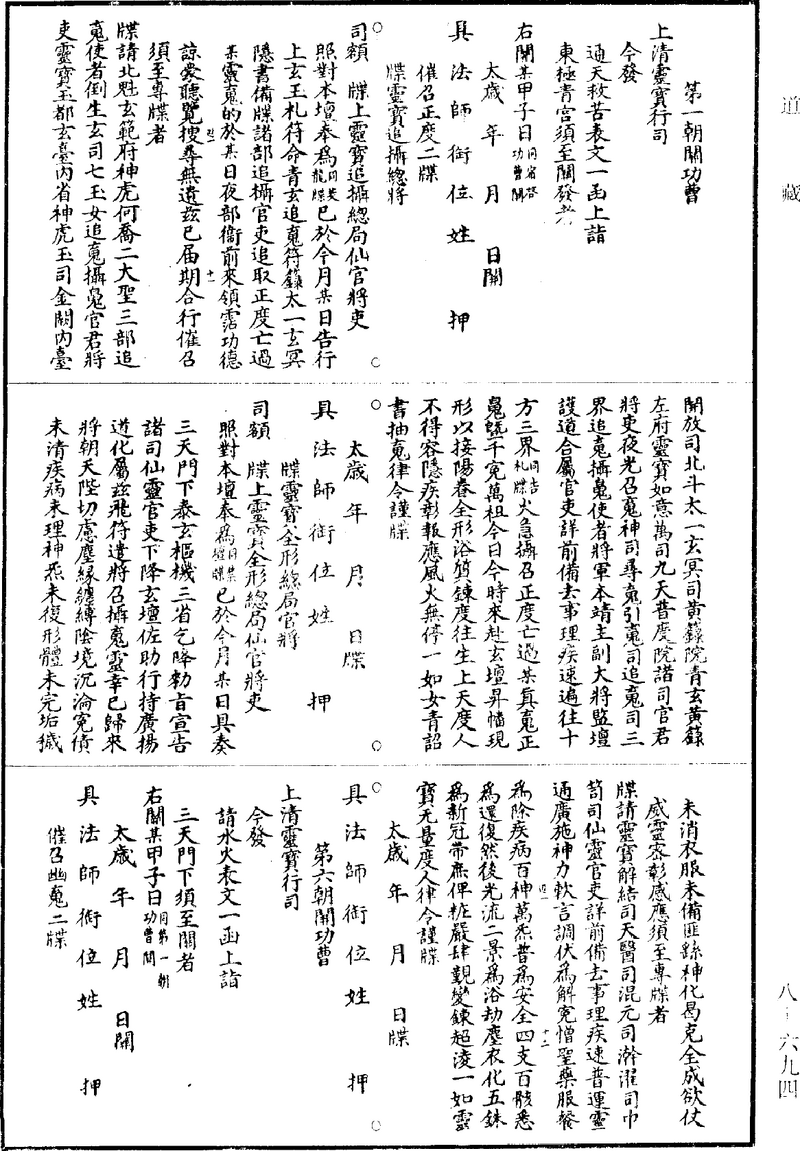 道藏
第一朝關功曹
上清靈寶行司
今發
通天救苦表文一函上詣
東極青宮須至關發者
右關某甲子日同宿啓功曹關
太歲年月日關
具法師銜位姓押
催召正度二牒
牒靈寶追攝總將
司額牒上靈寶追攝總局仙官將吏
照對本壇奉為同契龍牒已於今月某日告行
上玄玉札符命青玄追䰟符籙太一玄冥
隱書備牒諸部追攝官吏追取正度亡過
某靈䰟的於某日夜部衛前來領霑功德
諒蒙聽覽搜尋無遺茲已届期合行催召
須至專牒者
牒請北魁玄範府神虎何喬二大聖三部追
䰟使者倒生玄司七玉女追䰟攝䰟官君將
吏靈寶玉都玄臺內省神虎玉司金闕內臺
開放司北斗太一玄冥司黃籙院青玄黃籙
左府靈寶如意萬司九天普度院諸司官君
將吏夜光召䰟神司尋䰟引䰟司追䰟司三
界追䰟攝䰟使者將軍本靖主副大將監壇
護道合屬官吏詳前備去事理疾速遍往十
方三界同告札牒火急攝召正度亡過某真䰟正
䰟暨千冤萬祖今日今時來赴玄壇昇幡現
形以接陽眷全形浴質鍊度往生上天度人
不得容隱疾彰報應風火無停一如女青詔
書抽䰟律令謹牒
太歲年月日牒
具法師銜位姓押
牒靈寶全形總局官將
司額牒上靈寶全形總局仙官將吏
照對本壇奉為同某壇牒已於今月某日具奏
三天門下泰玄樞機三省乞降勑旨宣告
諸司仙靈官吏下降玄壇佐助行持廣揚
道化屬茲飛符遣將召攝䰟靈幸已歸來
將朝天陛切慮塵緣纏縛陰境沉淪冤債
未清疾病未理神炁未復形體未完垢穢
未消衣服未備匪繇神化曷克全成欲仗
威靈密彰感應須至專牒者
牒請靈寶解結司天醫司混元司澣濯司巾
笥司仙靈官吏詳前備去事理疾速普運靈
通廣施神力軟言調伏為解冤憎聖藥服餐
為除疾病百神萬炁普為安全四支百骸悉
為還復然後光流二景為浴劫塵衣化五銖
為新冠帶庶俾粧嚴肆覲變鍊超淩一如靈
寶无量度人律令謹牒
太歲年月日牒
具法師銜位姓押
第六朝關功曹
上清靈寶行司
今發
請水火表文一函上詣
三天門下須至關者
右關某甲子日同第一朝功曹關
太歲年月日關
具法師銜位姓押
催召幽䰟二牒
八－六九四